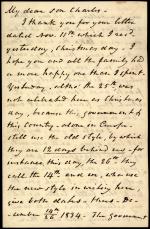 My dear son Charles.
I thank you for your letter
dated Nov. 11th which I rec'd
yesterday, Christmas day. I
hope you and all the family had
a more happy one than I spent.
Yesterday, altho' the 25th was
not celebrated here as Christmas
day, because the government of
this Country - alone in Europe -
still use the old style, by which
they are 12 days behind us - for
instance this day, the 26th they
call the 14th and we, who use
the new style in writing here,
give both dates - thus: De-
cember 14th/26 1834. The Government